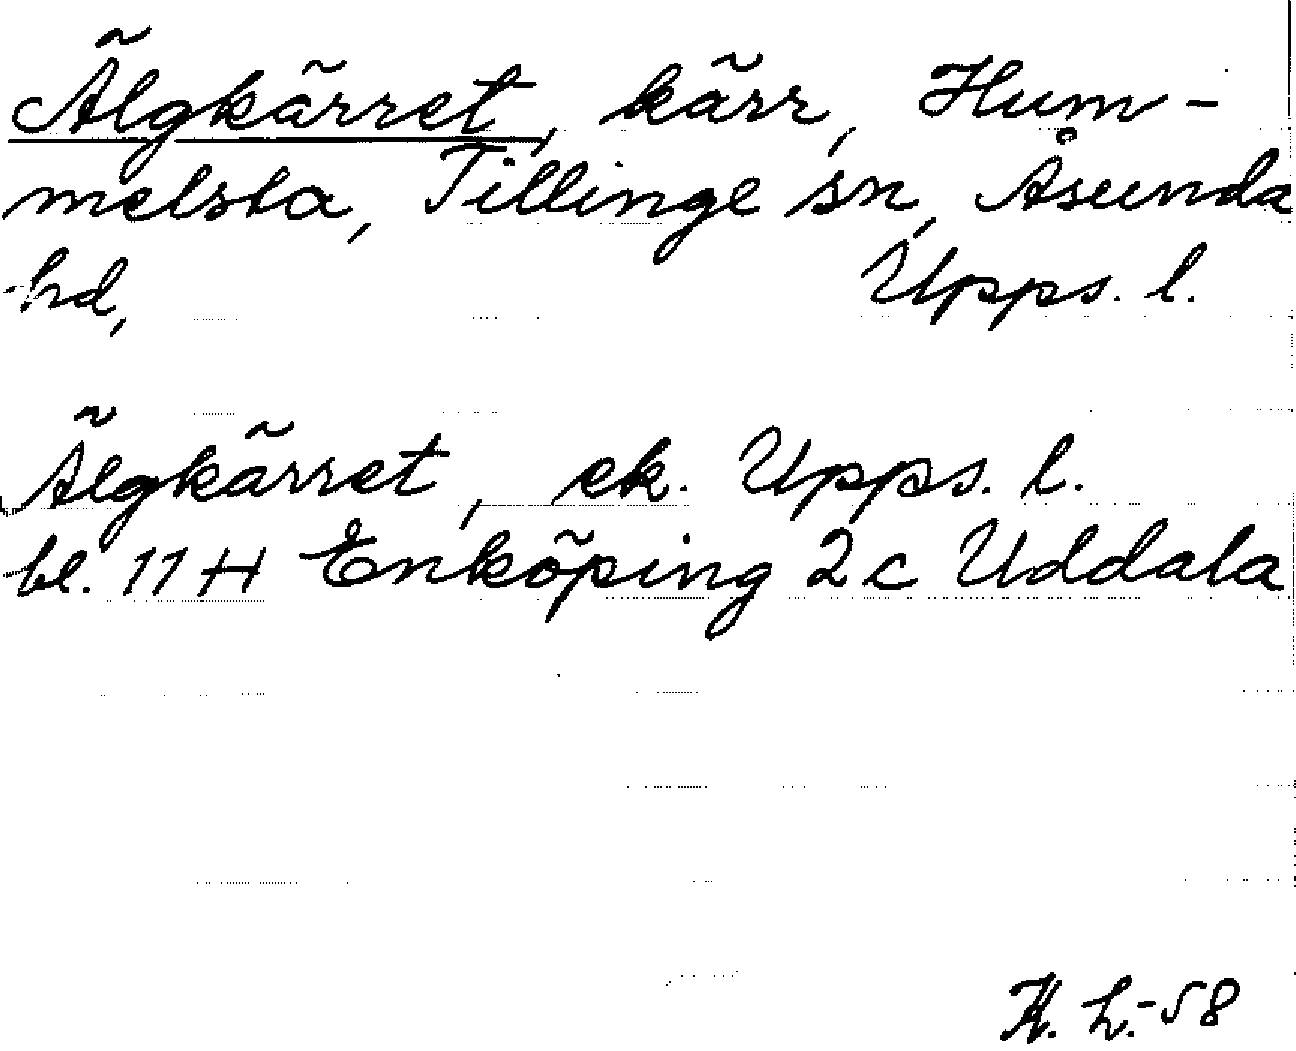 Älgkärret, kärr, Hum-
melsta, Tillinge sn, Åsunda
hd, Upps. l.
Älgkärret, ek. Upps. l.
bl. 11 H Enköping 2 c Uddala
H. L.-58